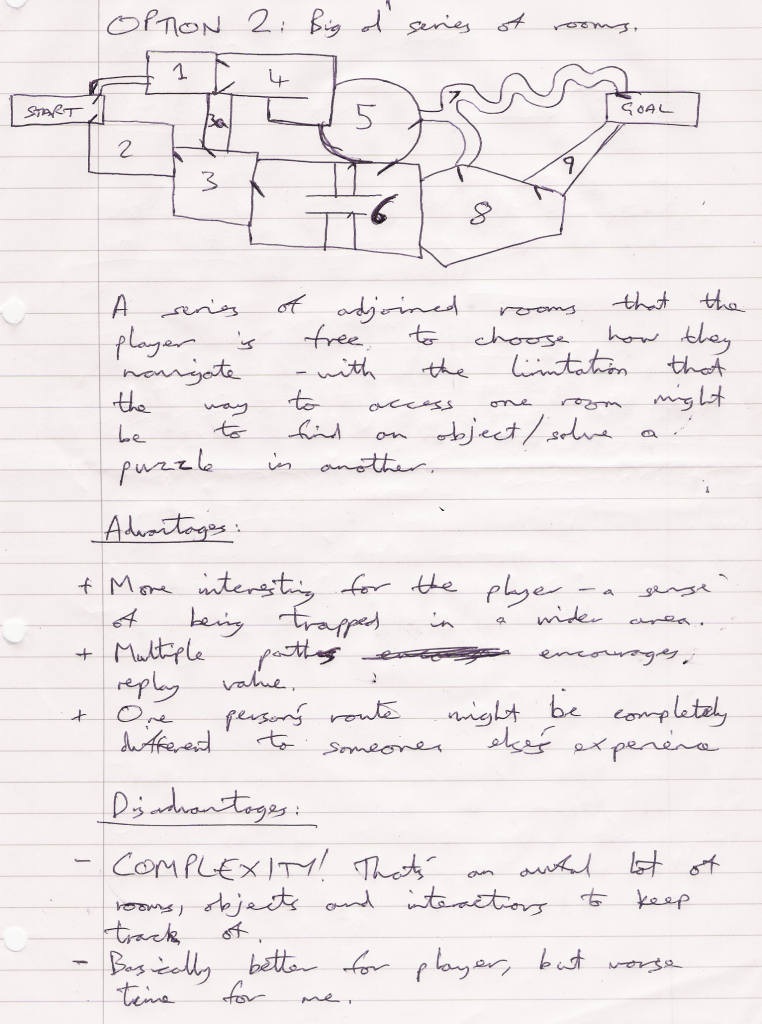 OPTION 2: Big ol' series of rooms.
START
1
4
5
7
GOAL
2
3a
3
6
8
9
A series of adjoined rooms that the
player is free to choose how they
navigate - with the limitation that
the way to access one room might
be to find an object/solve a
puzzle in another.
Advantages:
+ More interesting for the player - a sense
of being trapped in a wider area.
+ Multiple paths encourages
replay value.
+ One person's route might be completely
different to someones else's experience
Disadvantages:
- COMPLEXITY! That's an awful lot of
rooms, objects and interactions to keep
track of.
- Basically better for player, but worse
time for me.